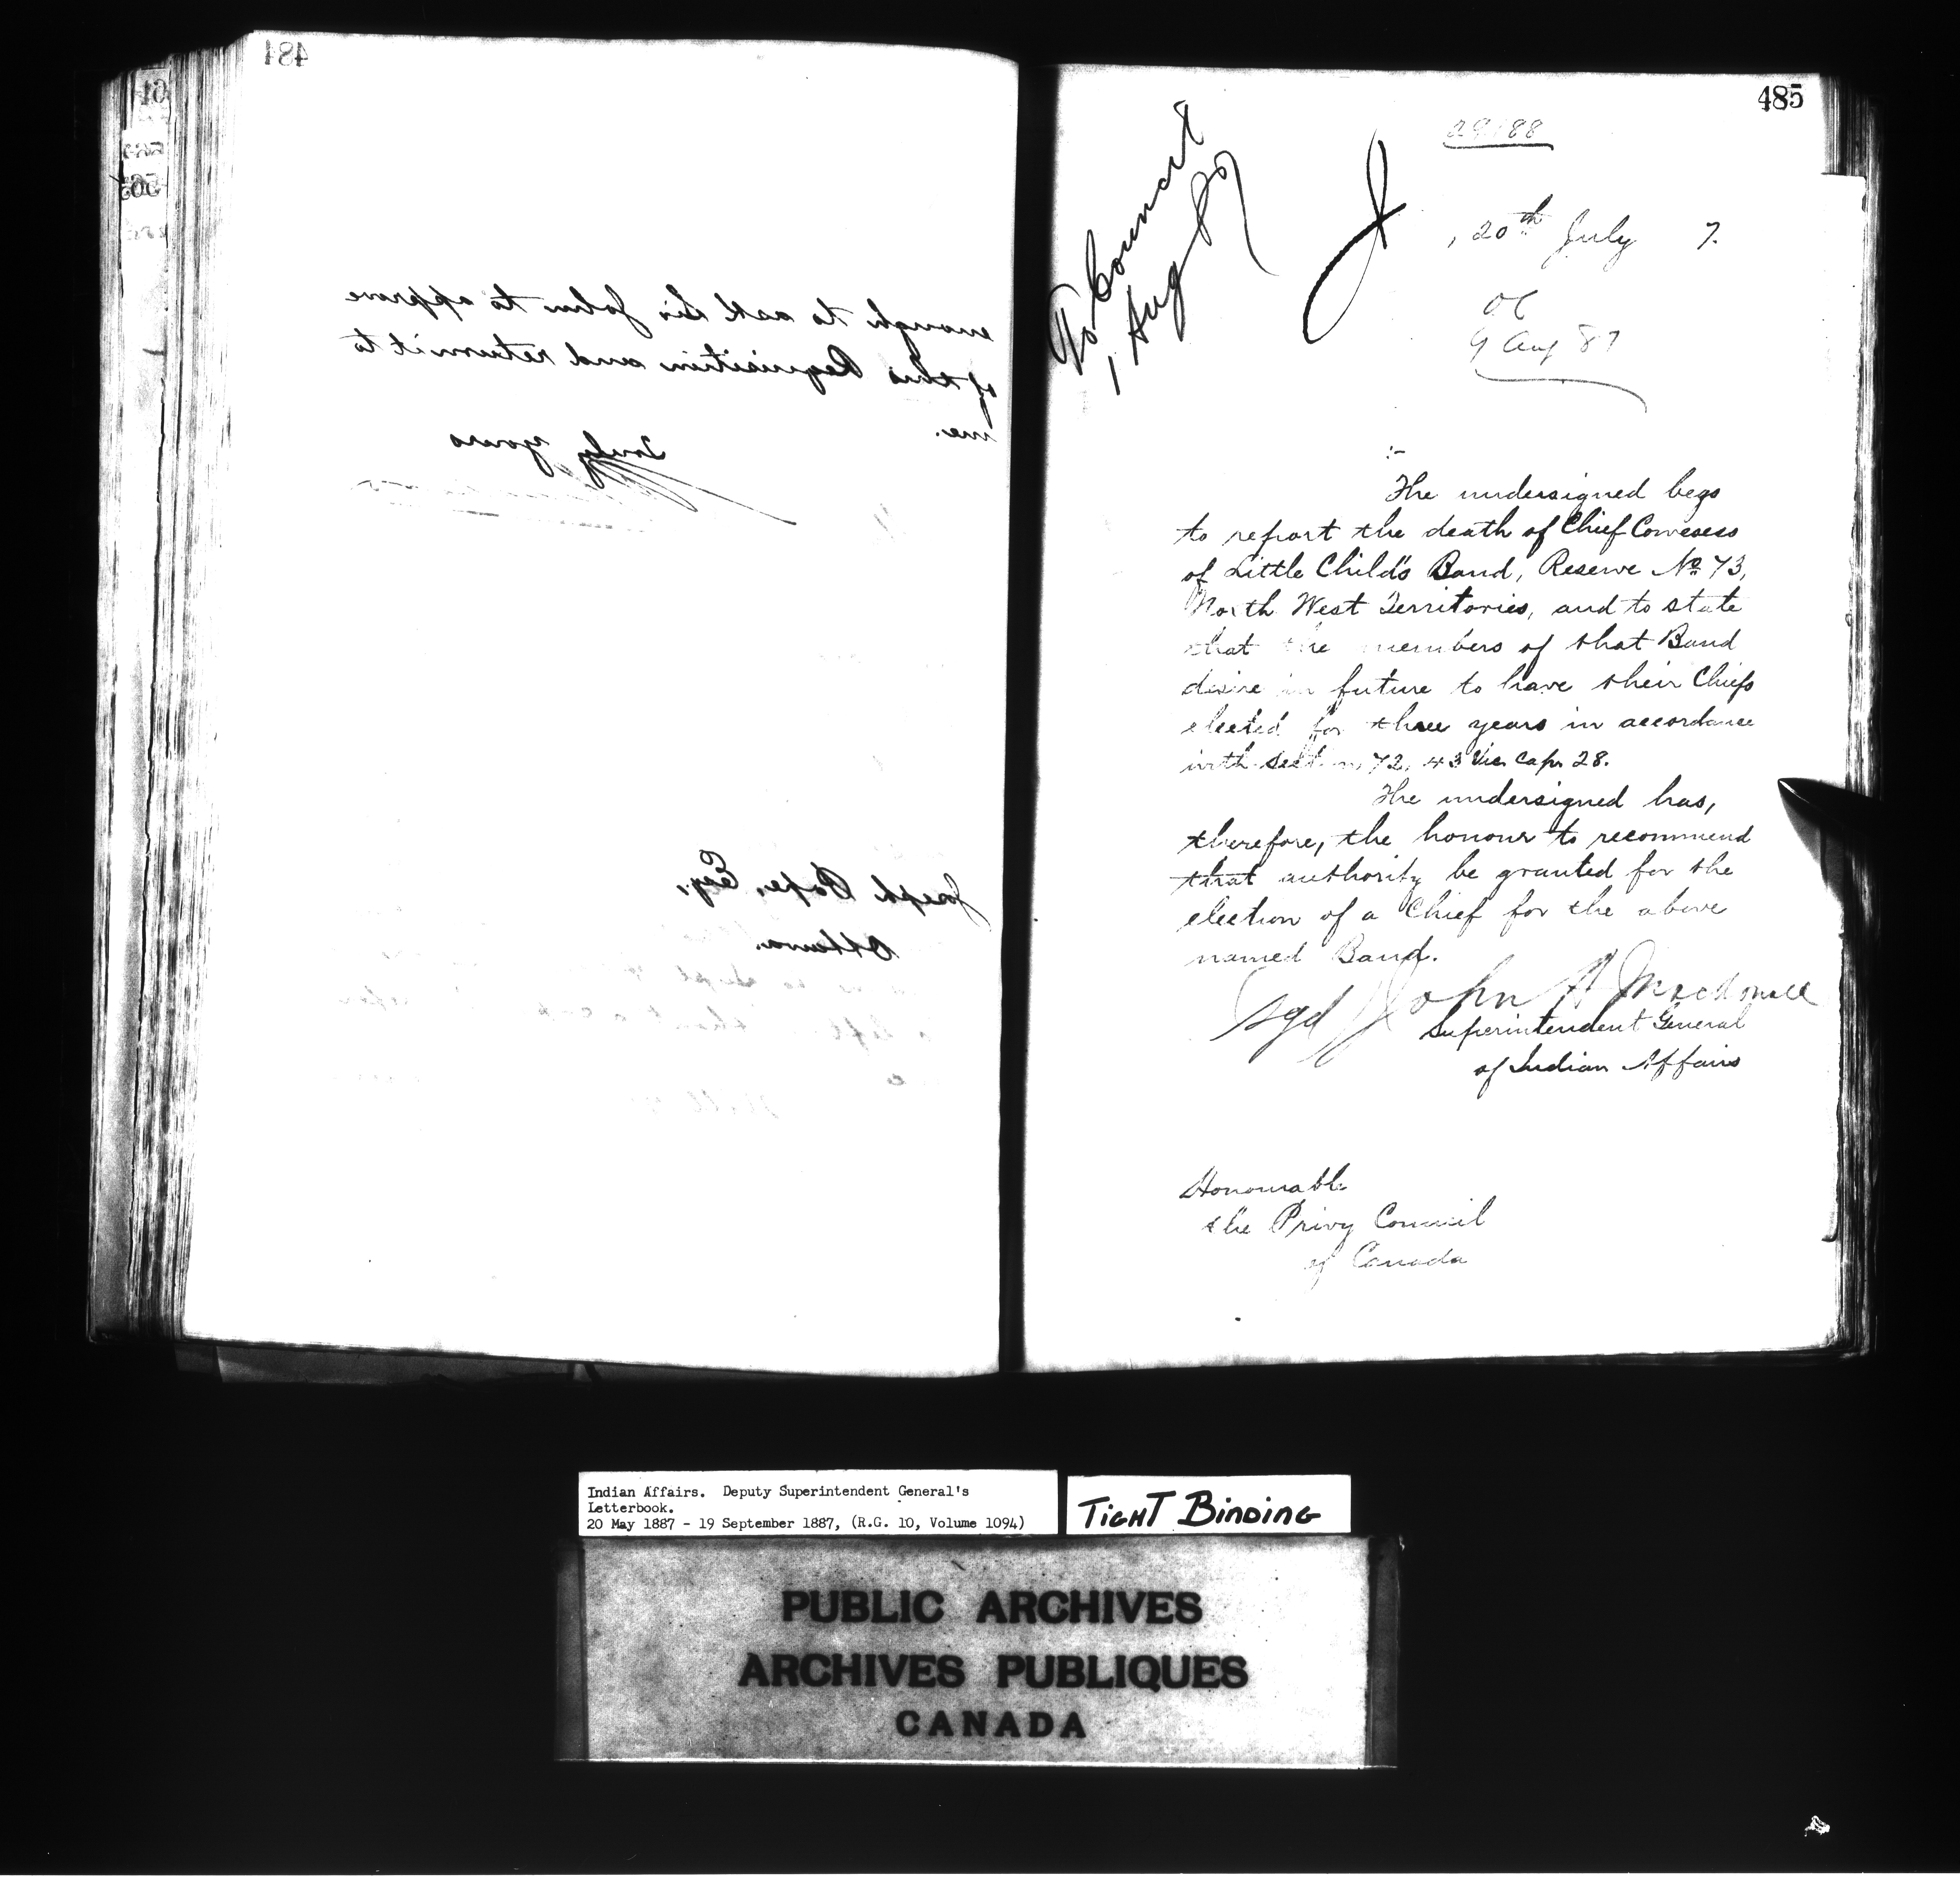 484
enough to ask Sir John to approve
of this Requisition and return it to
me.
Yours
Truly
Joseph Pope, Esq,
Ottawa.
485
To Council
1 Aug 87
, 20th July 7.
OC
9 Aug 87
:-
The undersigned begs
to report the death of Chief Cowesess
of Little Child's Band, Reserve No 73,
North West Territories, and to state
that the members of that Band
desire in future to have their Chiefs
elected for three years in accordance
with section 72, 43 Vic. Cap. 28.
The undersigned has,
therefore, the honour to recommend
that authority be granted for the
election of a Chief for the above
named Band.
(sgd) John A Macdonald
Superintendent General
of Indian Affairs
Honourable
the Privy Council
of Canada
Indian Affairs. Deputy Superintendent General's
Letterbook.
20 May 1887 - 19 September 1887, (R.G. 10, Volume 1094)
TIGHT BINDING
PUBLIC ARCHIVES
ARCHIVES PUBLIQUES
CANADA